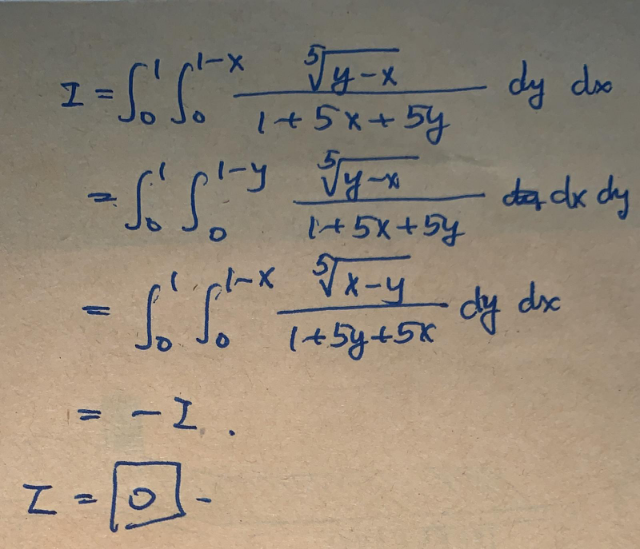 I = ∫₀¹ ∫₀^{1-x} \frac{\sqrt[5]{y-x}}{1+5x+5y} dy dx
= ∫₀¹ ∫₀^{1-y} \frac{\sqrt[5]{y-x}}{1+5x+5y} dx dy
= ∫₀¹ ∫₀^{1-x} \frac{\sqrt[5]{x-y}}{1+5y+5x} dy dx
= - I .
I = 0 -